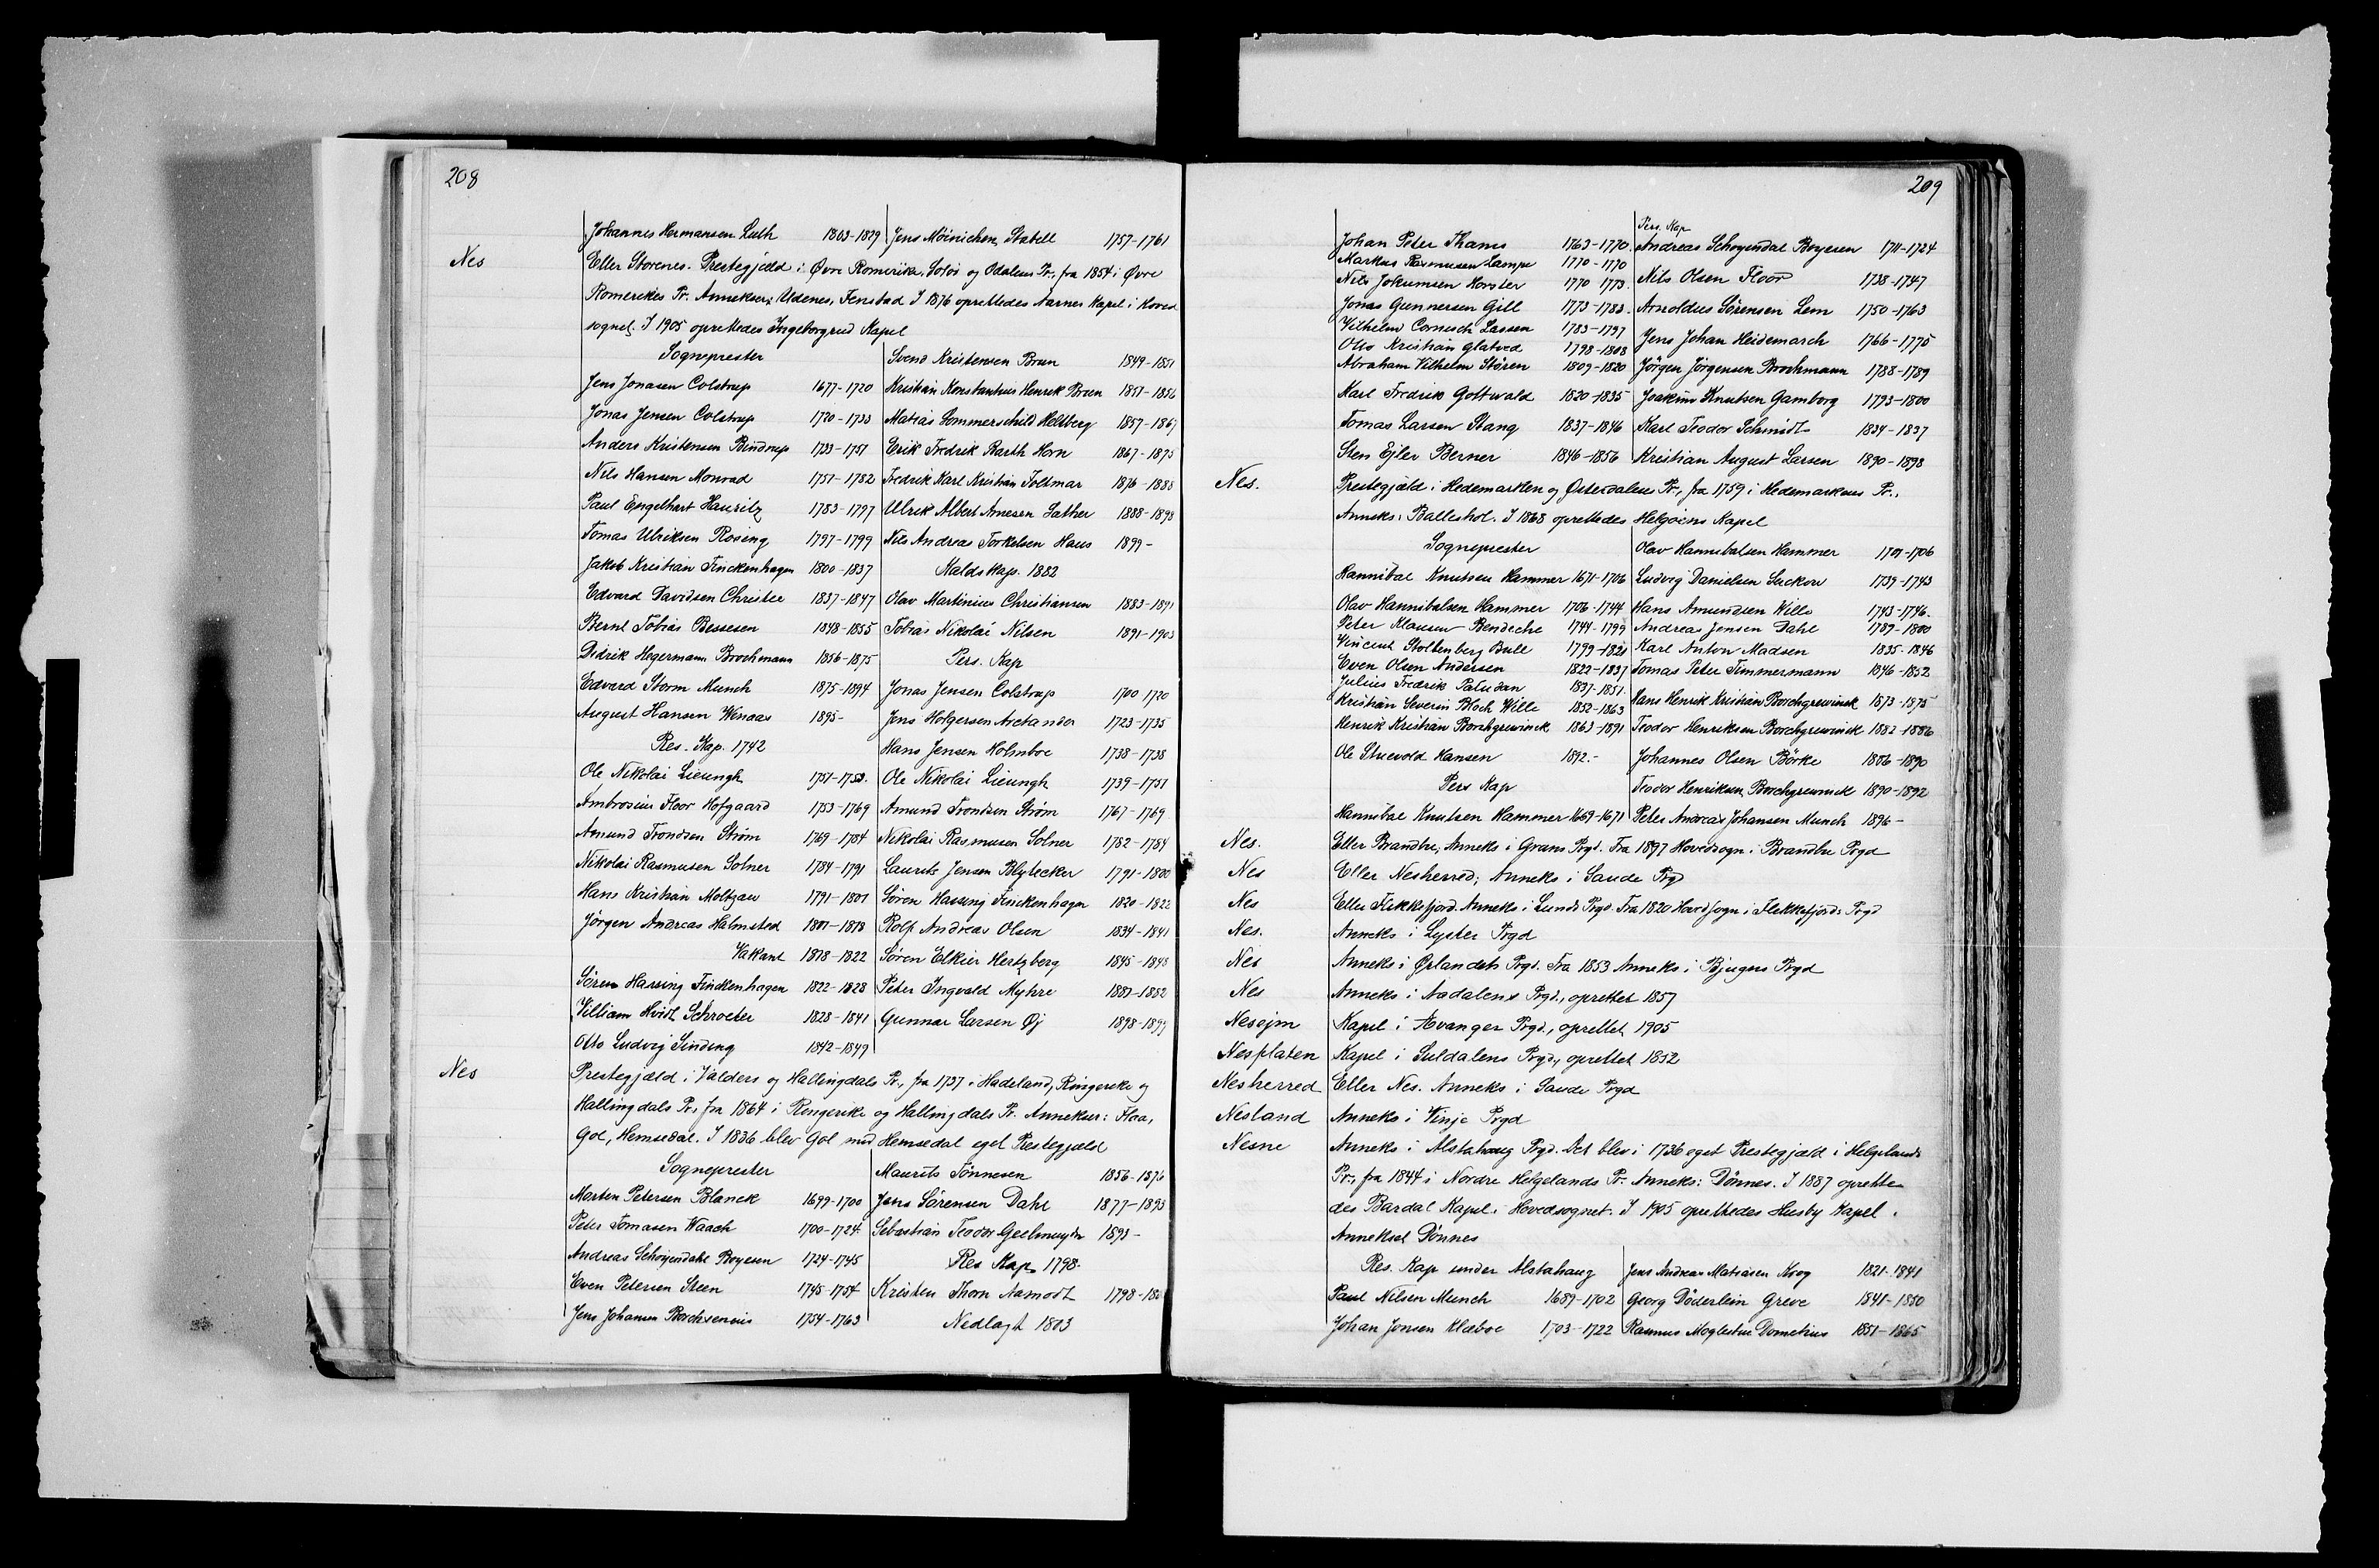 208
Johannes Hermansen Luth 1803-1829 Jens Möinichen Stabell 1757-1761
Nes Eller Storenes. Prestegjæld i Øvre Romerike, Solør og Odalens Pr., fra 1854 i Øvre
Romerikes Pr. Annekser: Udenes, Fenstad I 1876 oprettedes Aarnes Kapel i Hoved
sognet. I 1905 oprettedes Ingeborgrud Kapel
Sogneprester Svend Kristensen Brun 1849-1851
Jens Jonasen Colstrup 1677-1720 Kristian Konstantius Henrik Brun 1851-1856
Jonas Jensen Colstrup 1720-1733 Matias Sommerschild Heltberg 1857-1867
Anders Kristensen Bindrup 1733-1751 Erik Fredrik Barth Horn 1867-1875
Nils Hansen Monrad 1751-1782 Fredrik Karl Kristian Toltmar 1876-1888
Paul Engelhart Hauritz 1783-1797 Ulrik Albert Arnesen Sather 1888-1898
Tomas Ulriksen Rosing 1797-1799 Nils Andreas Torkelsen Haus 1899-
Jakob Kristian Finckenhagen 1800-1837 Kaldskap. 1882
Edvard Davidsen Christie 1837-1847 Olav Martinius Christiansen 1883-1891
Bernt Tobias Bessesen 1848-1855 Tobias Nikolai Nilsen 1891-1903
Didrik Hegermann Brochmann 1856-1875 Pers. Kap
Edvard Storm Munch 1875-1894 Jonas Jensen Colstrup 1700 1720
August Hansen Wenaas 1895- Jens Holgersen Arctander 1723-1735
Res. Kap. 1742 Hans Jensen Holmboe 1738-1738
Ole Nikolai Lieungh 1751-1753. Ole Nikolai Lieungh 1739-1751
Ambrosius Floor Hofgaard 1753-1769 Amund Trondsen Strøm 1767-1769
Amund Trondsen Strøm 1769-1784 Nikolai Rasmusen Solner 1782-1784
Nikolai Rasmusen Solner 1784-1791 Laurits Jensen Blytecker 1791-1800
Hans Kristian Moltzau 1791-1801 Sören Hassing Finckenhagen 1820-1822
Jörgen Andreas Halmsted 1801-1818 Rolf Andreas Olsen 1834-1841
Vakant 1818-1822 Sören Elkier Hertzberg 1845-1848
Sören Hassing Finckenhagen 1822-1828 Peter Ingvald Myhre 1881-1882
William Hvidt Schroeter 1828-1841 Gunnar Larsen Øj 1898-1899
Otto Ludvig Sinding 1842-1849
Nes Prestegjæld i Valders og Hallingdals Pr., fra 1737 i Hadeland, Ringerike og
Hallingdals Pr., fra 1864 i Ringerike og Hallingdals Pr. Annekser: Flaa,
Gol, Hemsedal. I 1836 blev Gol med Hemsedal eget Prestegjæld
Sogneprester Maurits Tönnesen 1856-1876
Morten Petersen Blanck 1699-1700 Jens Sörensen Dahl 1877-1893
Peter Tomasen Waach 1700-1724. Sebastian Teodor Geelmuyden 1893-
Andreas Schøyendahl Boyesen 1724-1745 Res Kap 1798.
Even Petersen Steen 1745-1754 Kristen Thorn Aamodt 1798-
Jens Johansen Borchsenius 1754-1763 Nedlagt 1803
209
Pers. Kap
Johan Peter Thams 1763-1770. Andreas Schoyendal Boyesen 1711-1724
Markus Rasmusen Lampe 1770-1770
Nils Jokumsen Horster 1770 1773. Nils Olsen Floor 1738-1747
Jonas Gunnersen Gill 1773-1783. Arnoldus Sörensen Lem 1750-1763
Vilhelm Cornisch Lassen 1783-1797 Jens Johan Heidemarch 1766-1775
Otto Kristian Glatved 1798-1808
Abraham Vilhelm Stören 1809-1820 Jörgen Jörgensen Brochmann 1788-1789
Karl Fredrik Gottwald 1820-1835 Joakim Knutsen Gamborg 1793-1800
Tomas Larsen Stang 1837-1846 Karl Teodor Schmidt 1834-1837
Sten Ejler Berner 1846-1856 Kristian August Larsen 1890-1898
Nes. Prestegjæld i Hedemarken og Østerdalens Pr., fra 1759 i Hedemarkens Pr.,
Anneks: Balleshol. I 1868 oprettedes Helgöens Kapel
Sogneprester Olav Hannibalsen Hammer 1701-1706
Hannibal Knutsen Hammer 1671-1706 Ludvig Danielsen Suckow 1739-1743
Olav Hannibalsen Hammer 1706-1744 Hans Amundsen Wille 1743-1746.
Peter Klausen Bendeche 1744-1799 Andreas Jensen Dahl 1789-1800
Vincent Stoltenberg Bull 1799-1821 Karl Anton Madsen 1835-1846
Even Olsen Andersen 1822-1837 Tomas Peter Timmermann 1846-1852
Julius Fredrik Paludan 1837-1851.
Kristian Severin Bloch Wille 1852-1863 Hans Henrik Kristian Borchgrewinck 1873-1875
Henrik Kristian Borchgrewinck 1863-1891 Teodor Henriksen Borchgrewinck 1882-1886
Ole Stuevold Hansen 1892.- Johannes Olsen Börke 1886-1890
Pers Kap Teodor Henriksen Borchgrewinck 1890-1892
Hannibal Knutsen Hammer 1669-1671 Peter Andreas Johansen Munch 1896-
Nes. Eller Brandbu; Anneks i Grans Prgd. Fra 1897 Hovedsogn i Brandbu Prgd
Nes Eller Nesherred; Anneks i Saude Prgd
Nes Eller Flekkefjord. Anneks i Lunds Prgd. Fra 1820 Hovedsogn i Flekkefjords Prgd
Nes. Anneks i Lyster Prgd
Nes Anneks i Ørlandets Prgd. Fra 1853 Anneks i Bjugns Prgd
Nes Anneks i Aadalens Prgd., oprettet 1857
Nesøjm Kapel i Ævanger Prgd., oprettet 1905
Nesflaten Kapel i Suldalens Prgd., oprettet 1852
Nesherred Eller Nes. Anneks i Saude Prgd
Nesland Anneks i Vinje Prgd
Nesne Anneks i Alstahaug Prgd. Det blev i 1736 eget Prestegjæld i Helgelands
Pr., fra 1844 i Nordre Helgelands Pr. Anneks: Dönnes. I 1887 oprette-
des Bardal Kapel i Hovedsognet. I 1905 oprettedes Husby Kapel i
Annekset Dönnes
Res. Kap under Alstahaug Jens Andreas Matiasen Krog 1821-1841
Paul Nilsen Munch 1689-1702 Georg Döderlein Greve 1841-1850
Johan Jonsen Klæboe 1703-1722 Rasmus Moglestue Dometius 1851-1865